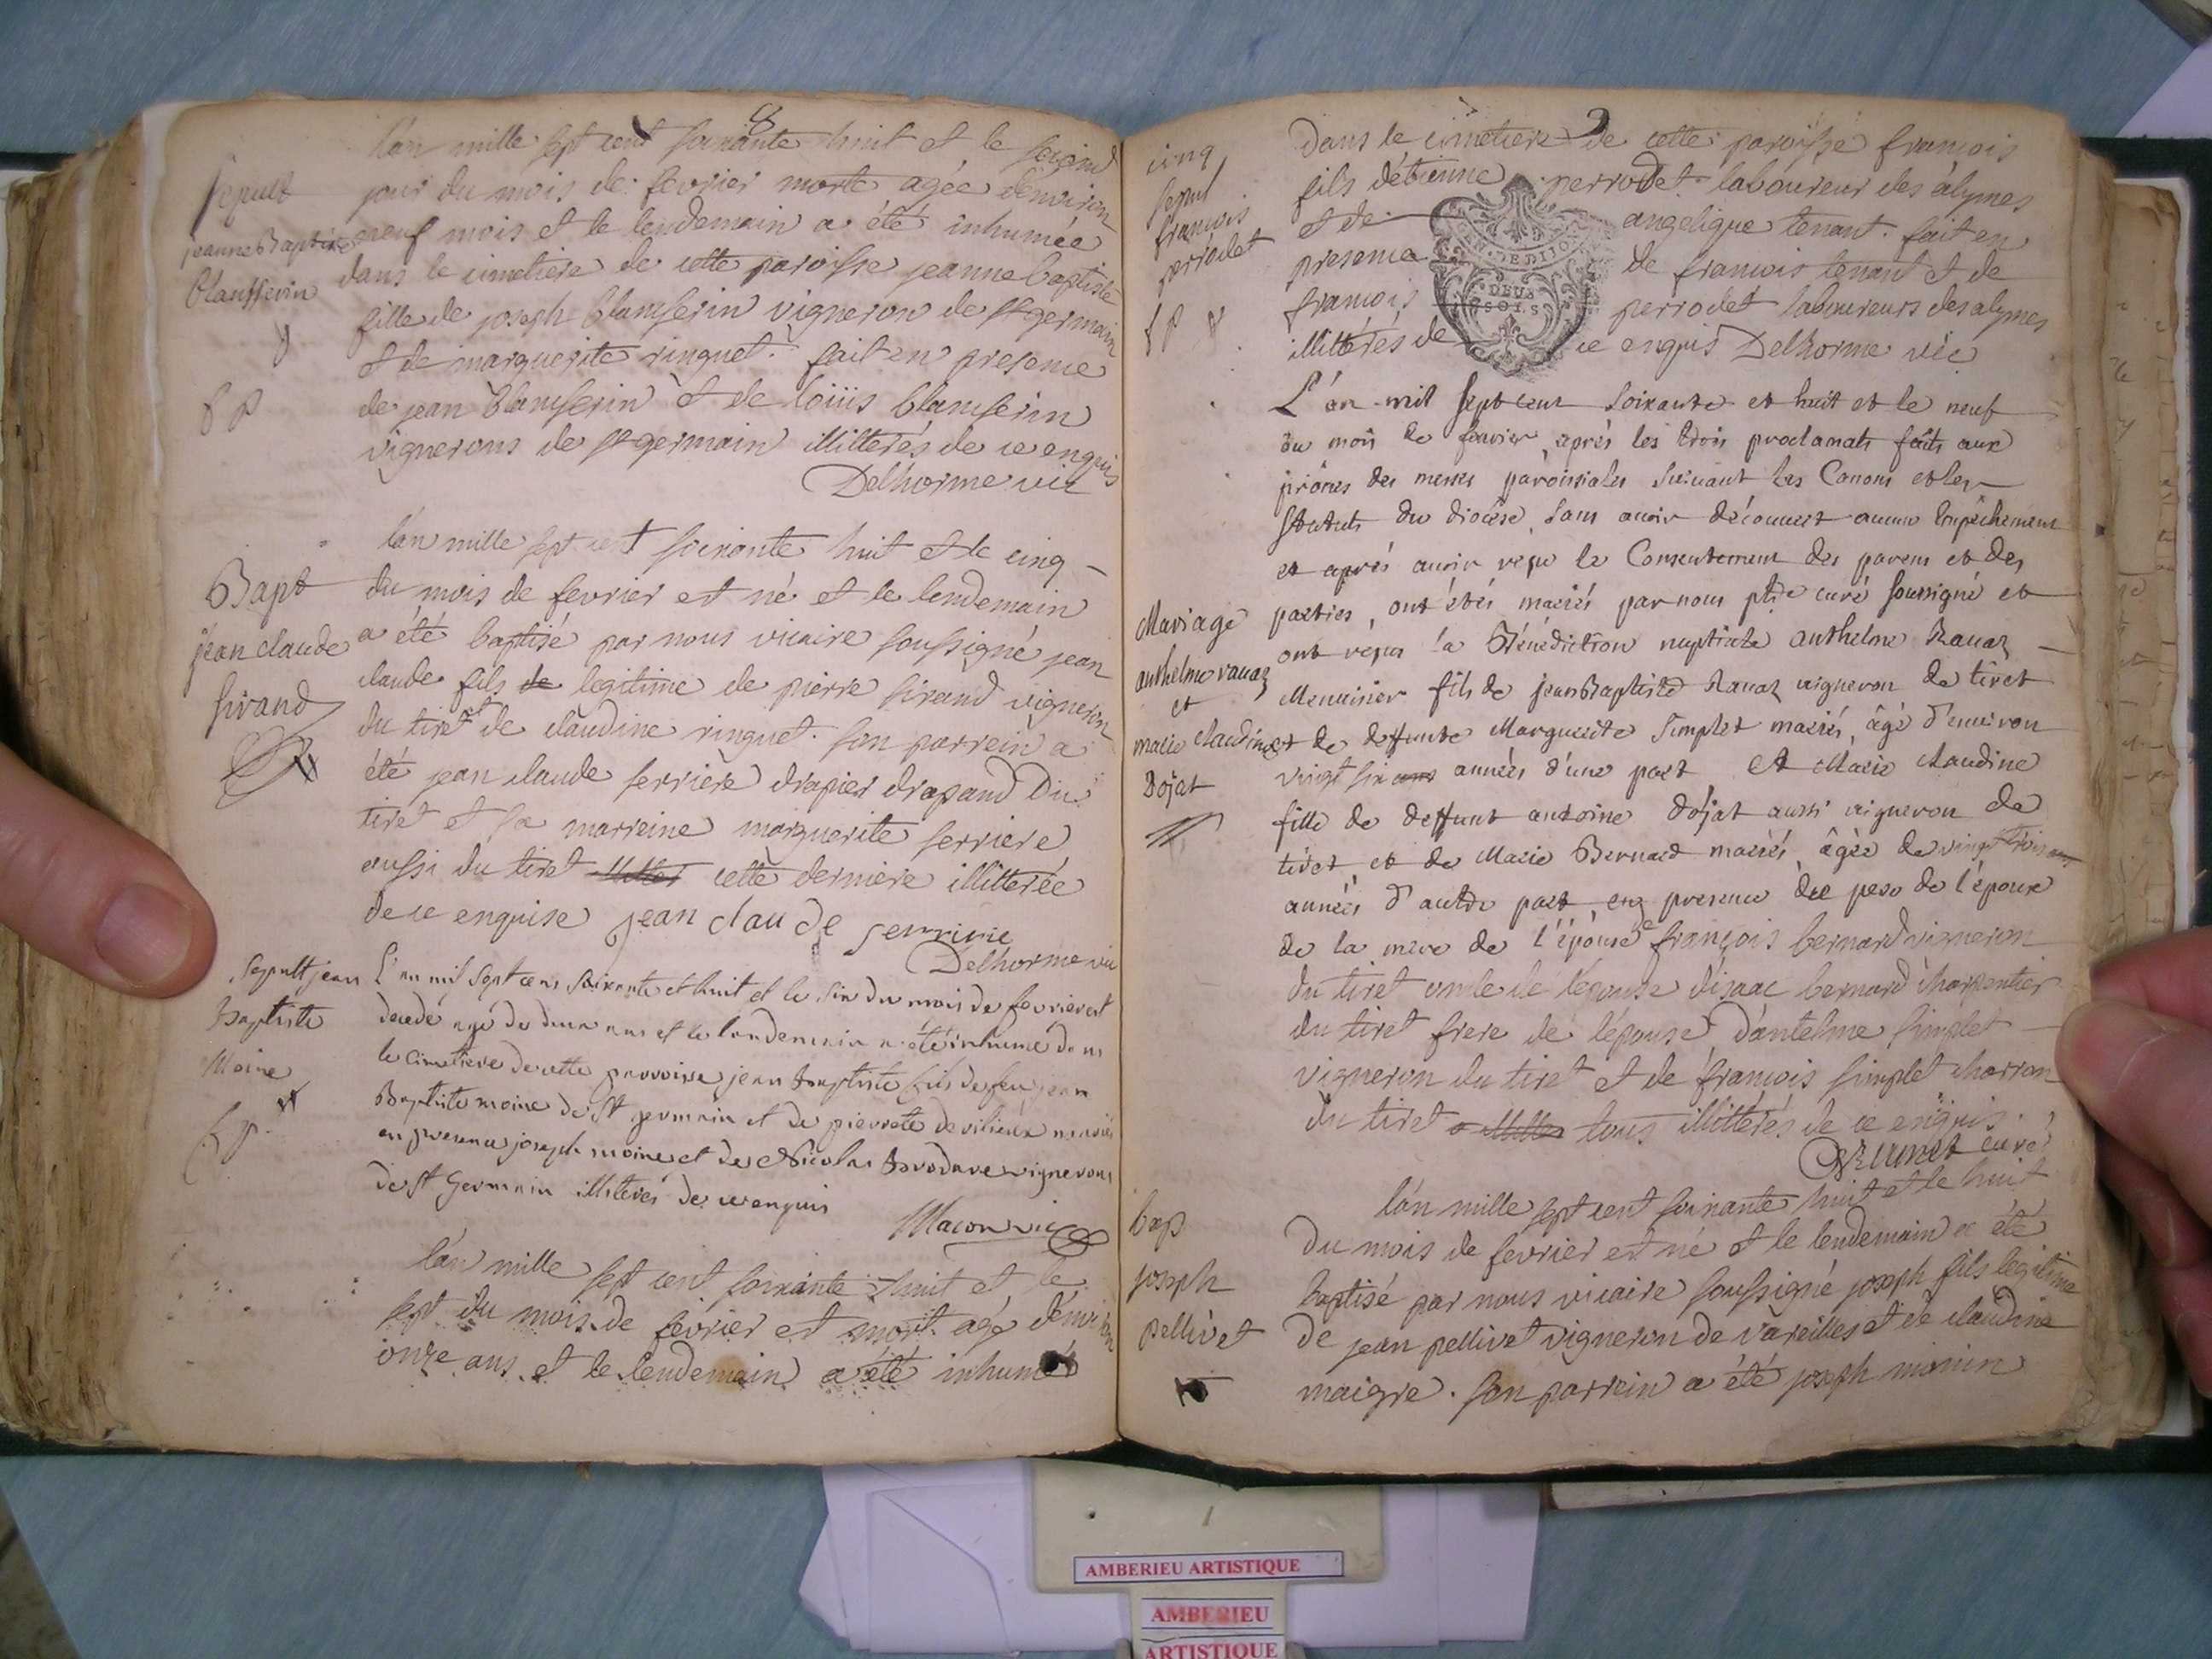 8
l'an mille sept cent soixante huit et le second
sepult jour du mois de fevrier morte agée d'environ
jeanne Baptiste neuf mois et le lendemain a été inhumée
Blanfferin dans le cimetiere de cette paroisse jeanne baptiste
fille de joseph blanferin vigneron de st germain
et de marguerite ringuet. fait en presence
de jean blanferin et de loüis blanferin
vignerons de st germain illitterés de ce enquis
Delhorme vic
l'an mille sept cent soixante huit et le cinq
Bapt du mois de fevrier est né et le lendemain
jean claude a été baptisé par nous vicaire soussigné jean
sirand claude fils de legitime de pierre sirand vigneron
du tiret et de claudine ringuet. son parrein a
été jean claude ferriere drapier drapand du
tiret et sa marreine marguerite ferriere
aussi du tiret cette derniere illitterée
de ce enquise jean claude ferririe
Delhorme vic
Sepult jean L'an mil sept cens soixante et huit et le six du mois de fevrier est
Baptiste decedé agé de deux ans et le landemain a été inhumé dans
Moine le cimetiere de cette parroisse jean Baptiste fils de feu jean
Baptiste moine de St germain et de pierrete devilieux mariés
en presence joseph moine et de Nicolas Brodare vignerons
de St Germain illiterés de ce enquis
Macon vic
l'an mille sept cent soixante huit et le
sept du mois de fevrier est mort agé d'environ
onze ans et le lendemain a été inhumé
9
cinq dans le cimetiere de cette paroisse francois
sepul fils détienne perrodet laboureur des alymes
francois et de angelique tenant. fait en
perrodet presence de francois tenant et de
francois perrodet laboureurs des alymes
illittérés de ce enquis Delhorme vic
GEN. DE DIJON
DEUX
SOLS
L'an mil sept cent soixante et huit et le neuf
du mois de fevrier, après les trois proclamats faits aux
prônes des messes paroissiales suivant les Canons et les
statuts du diocèse, sans avoir découvert aucun Empêchement
et après avoir reçu le Consentement des parens et des
Mariage parties, ont étés mariés par nous ptre curé soussigné et
anthelme ravaz ont reçu la Bénédiction nuptiale anthelme Ravaz
et Menuisier fils de jean Baptiste Ravaz vigneron de tiret
marie claudine et de deffunte Marguerite Simplet mariés, âgé d'environ
Dojat vingt six ans années d'une part Et Marie Claudine
fille de deffunt antoine Dojat aussi vigneron de
tiret, et de Marie Bernard mariés, âgée de vingt trois ans
années d'autre part, en presence du pere de l'époux
de la mere de l'épouse de françois bernard vigneron
du tiret oncle de l'épouse d'isaac bernard charpentier
du tiret frere de lépouse, d'antelme simplet
vigneron du tiret et de françois simplet charron
du tiret tous illittérés de ce enquis.
Brunet curé
bap. l'an mille sept cent soixante huit et le huit
du mois de fevrier est né et le lendemain a été
joseph baptisé par nous vicaire soussigné joseph fils legitime
pellivet de jean pellivet vigneron de vareilles et de claudine
maigre. son parrein a été joseph monin
AMBERIEU ARTISTIQUE
AMBERIEU
ARTISTIQUE